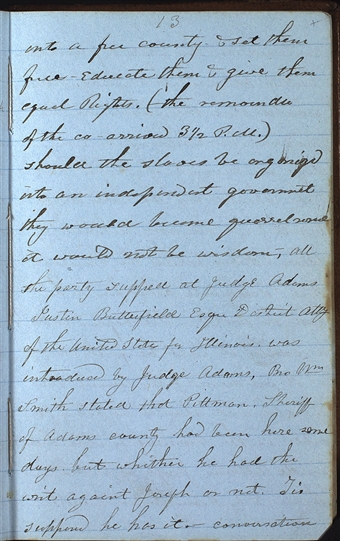 13
into a free county & set them
free - Educate them & give them
equal Rights. (the remainder
of the co- arrived 3 1/2 P.M.)
should the slaves be organized
into an independent government
they would become quarrelsome
it would not be wisdom, all
the party supped at Judge Adams
Justin Butterfield Esqr District Atty
of the United State for Illinois was
introduced by Judge Adams, Bro Wm
Smith stated that Pittman, Sheriff
of Adams county had been here some
days. but whither he had the
writ againt Joseph or not. Tis
suppond he has it - conversation